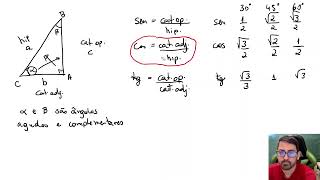 B
β
hip
a
cat.op.
c
α
β
C
b
A
cat.adj.
α e β são ângulos
agudos e complementares
sen = cat.op / hip.
cos = cat.adj. / hip.
tg = cat.op. / cat.adj.
30° 45° 60°
sen 1/2 √2/2 √3/2
cos √3/2 √2/2 1/2
tg √3/3 1 √3